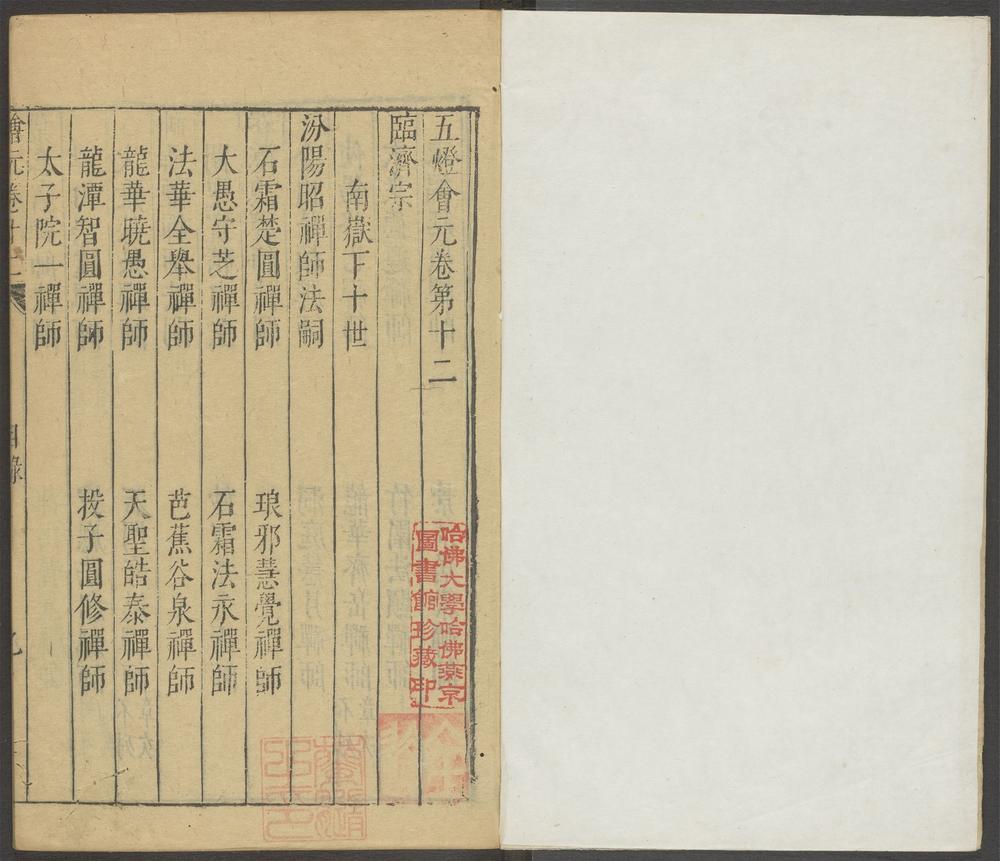 五燈會元卷第十二
臨濟宗
南嶽下十世
汾陽昭禪師法嗣
石霜楚圓禪師
琅邪慧覺禪師
大愚守芝禪師
石霜法永禪師
法華全舉禪師
芭蕉谷泉禪師
龍華曉愚禪師
天聖皓泰禪師
龍潭智圓禪師
投子圓修禪師
太子院一禪師
會元卷十二
目錄
哈佛大學哈佛燕京
圖書館珍藏印